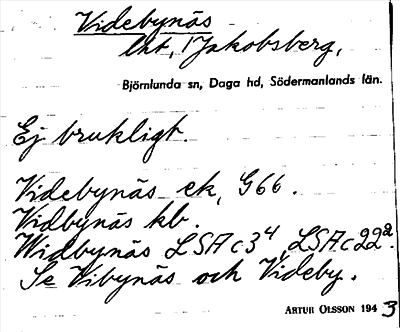 Videbynäs
lht, Jakobsberg,
Björnlunda sn, Daga hd, Södermanlands län.
Ej brukligt.
Videbynäs ek, G66.
Vidbynäs kb.
Widbynäs LSA c3⁴, LSA c22ᵃ.
Se Vibynäs och Videby.
ARTUR OLSSON 1943